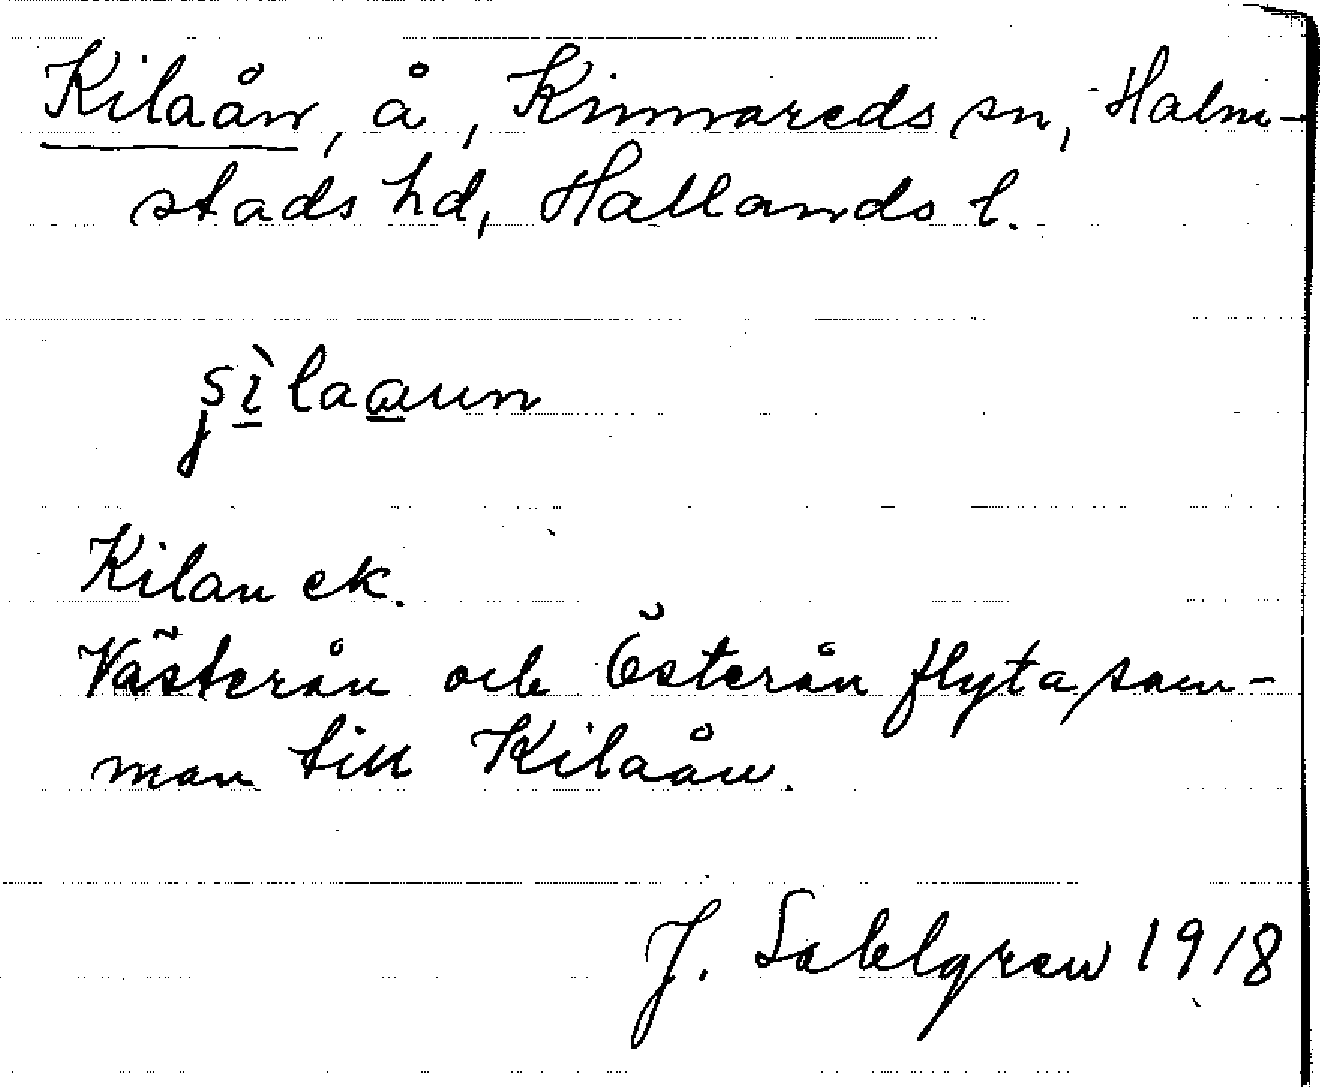 Kilaån, å, Kinnareds sn, Halm-
stads hd, Hallands l.
Kilan ek.
Västerån och Österån flyta sam-
man till Kilaån.
J. Sahlgren 1918